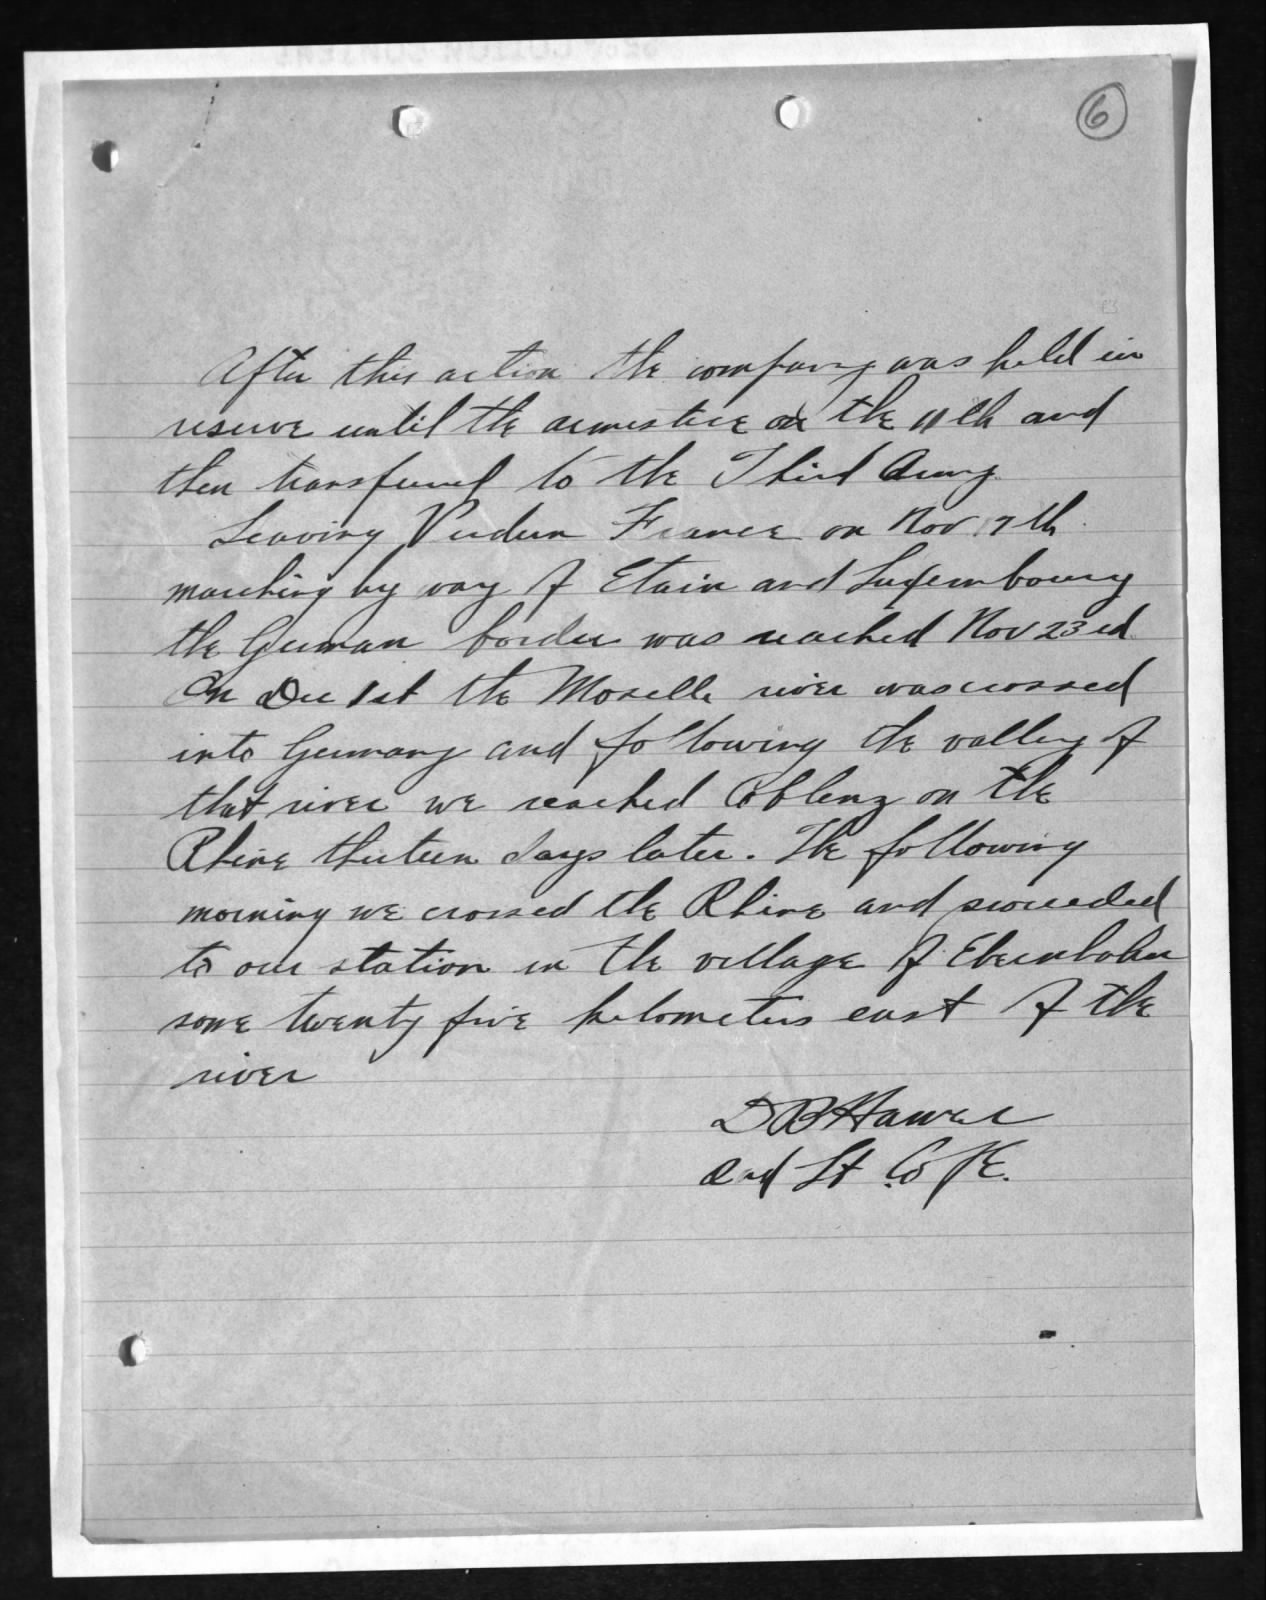 6
After this action the company was held in
reserve until the armistice on the 11th and
then transferred to the Third Army.
Leaving Verdun France on Nov 17th
marching by way of Etain and Luxembourg
the German border was reached Nov 23rd
On Dec 1st the Moselle river was crossed
into Germany and following the valley of
that river we reached Coblenz on the
Rhine thirteen days later. The following
morning we crossed the Rhine and proceeded
to our station in the village of
some twenty five kilometers east of the
river
D B
2nd Lt Co K.